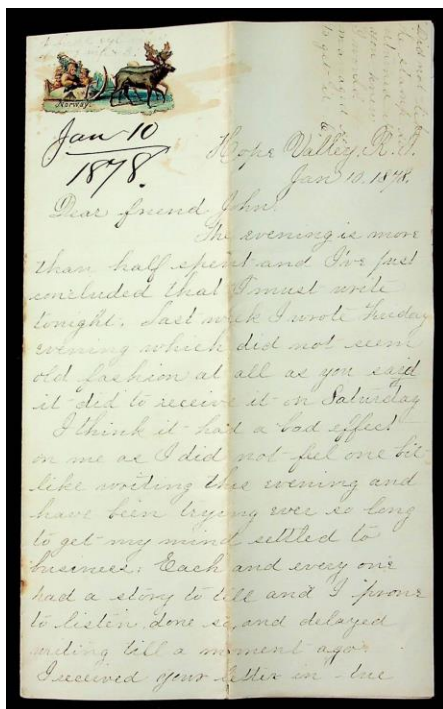 Norway.
Jan 10
1878.
Did not
you knew
to get it
Hope Valley, R.I.
Jan 10. 1878.
Dear friend John.
The evening is more
than half spent and I've just
concluded that I must write
tonight. Last week I wrote
evening which did not seem
old fashion at all as you said
it did to receive it on Saturday
I think it had a bad effect
on me as I did not feel one bit
like writing this evening and
have been trying ever so long
to get my mind settled to
business. Each and every one
had a story to tell and I prone
to listen, done so, and delayed
writing till a moment ago.
I received your letter in due